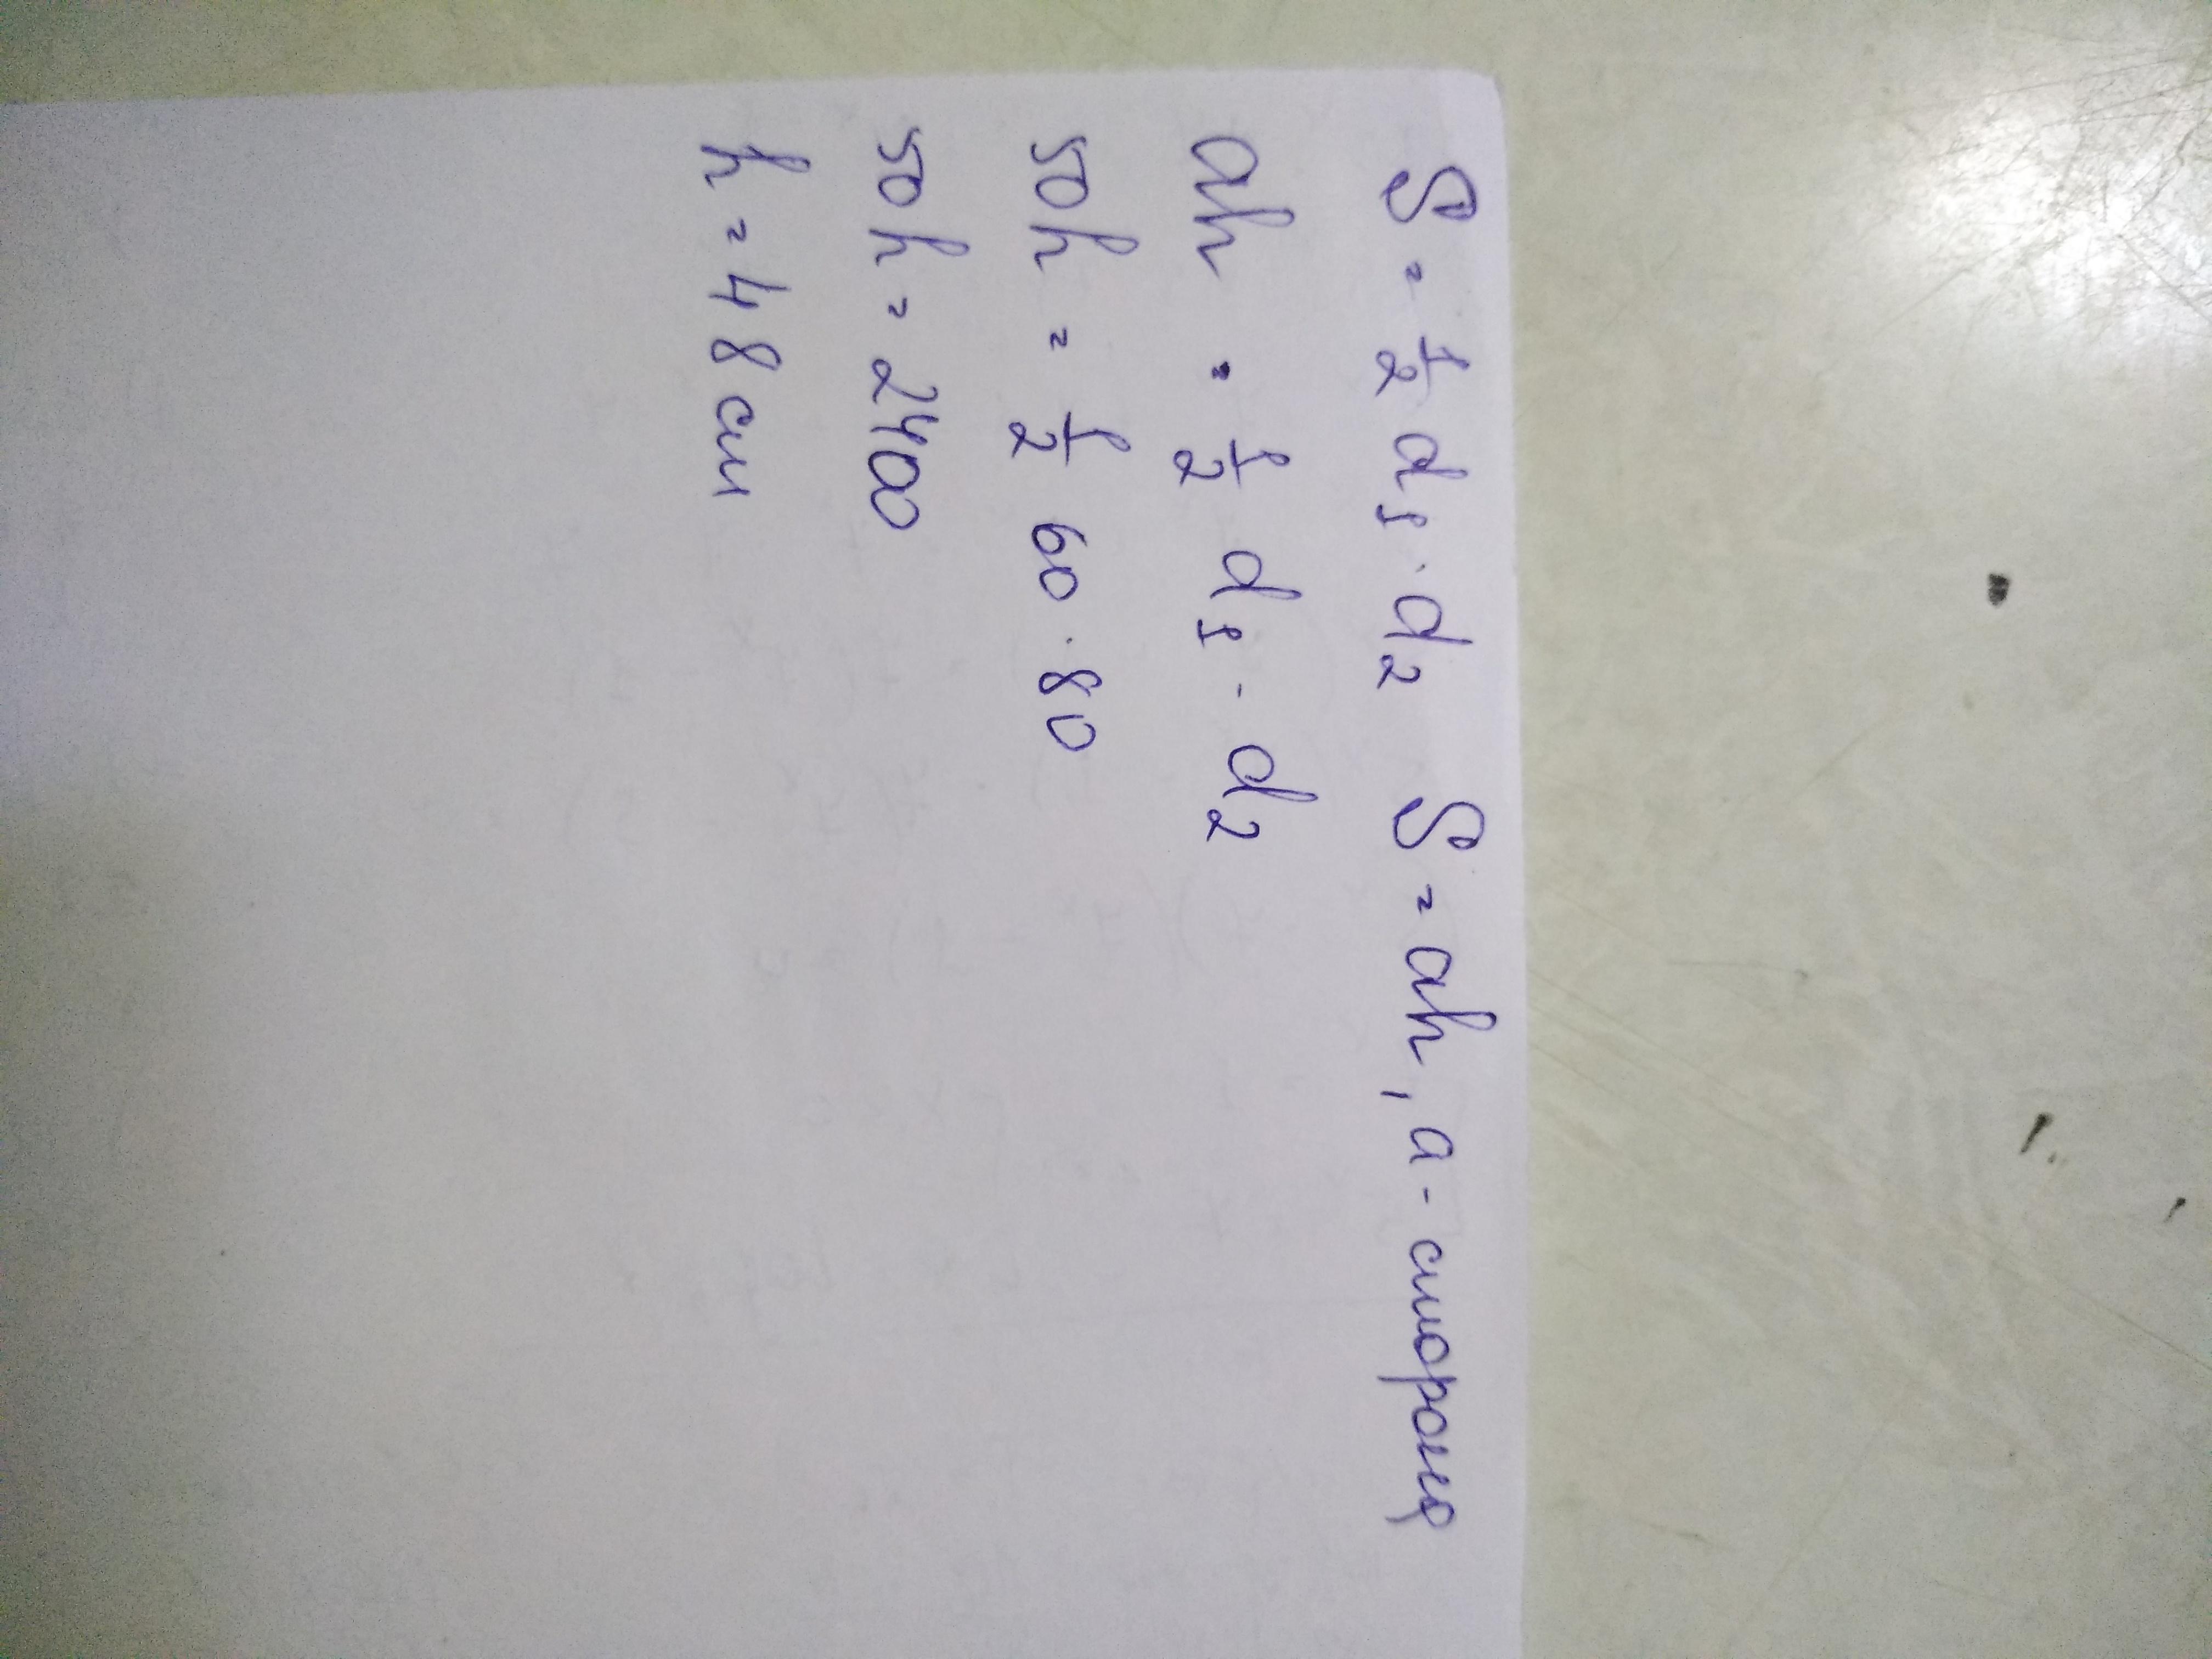 S = 1/2 d1 · d2 S = ah, a - сторона
ah = 1/2 d1 · d2
50h = 1/2 60 · 80
50h = 2400
h = 48 см